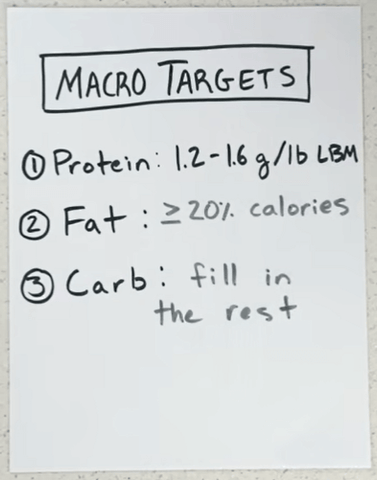 MACRO TARGETS
① Protein: 1.2-1.6 g/lb LBM
② Fat: ≥20% calories
③ Carb: fill in
the rest